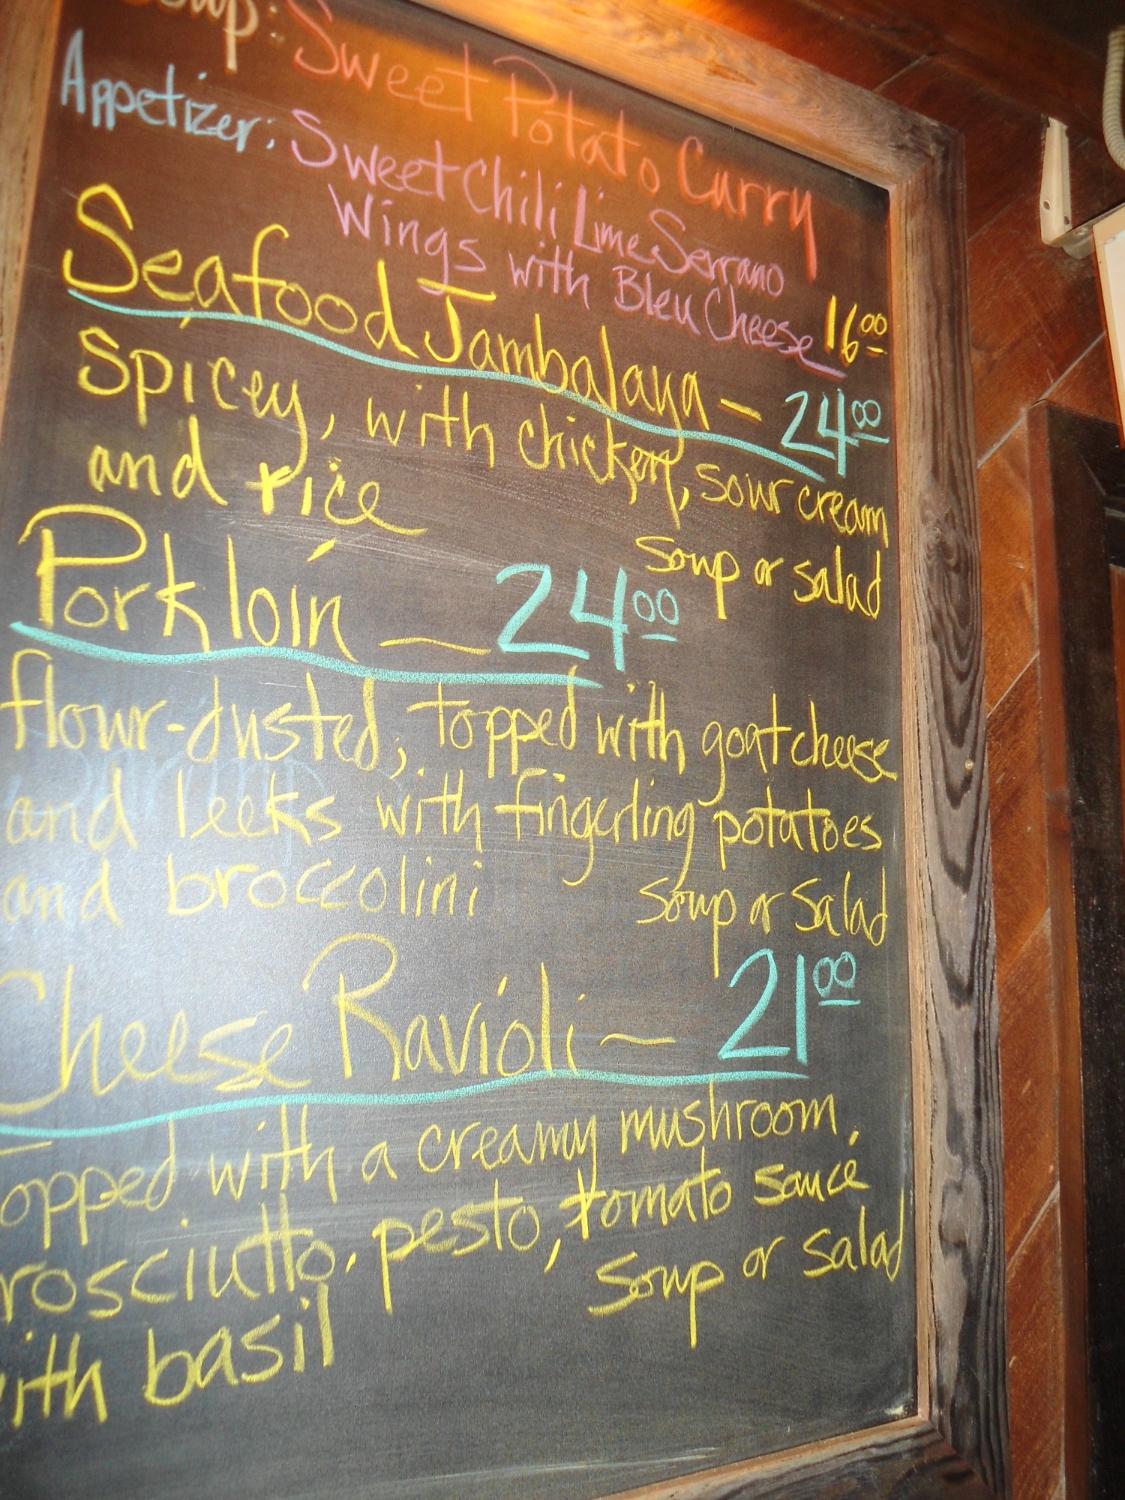 Soup: Sweet Potato Curry
Appetizer: Sweet Chili Lime Serrano
Wings with Bleu Cheese 16.00
Seafood Jambalaya – 24.00
Spicey, with chicken, sour cream
and rice
soup or salad
Pork loin – 24.00
flour-dusted, topped with goat cheese
and leeks with fingerling potatoes
and broccolini soup or salad
Cheese Ravioli – 21.00
Topped with a creamy mushroom,
rosciutto, pesto, tomato sauce
with basil
soup or salad